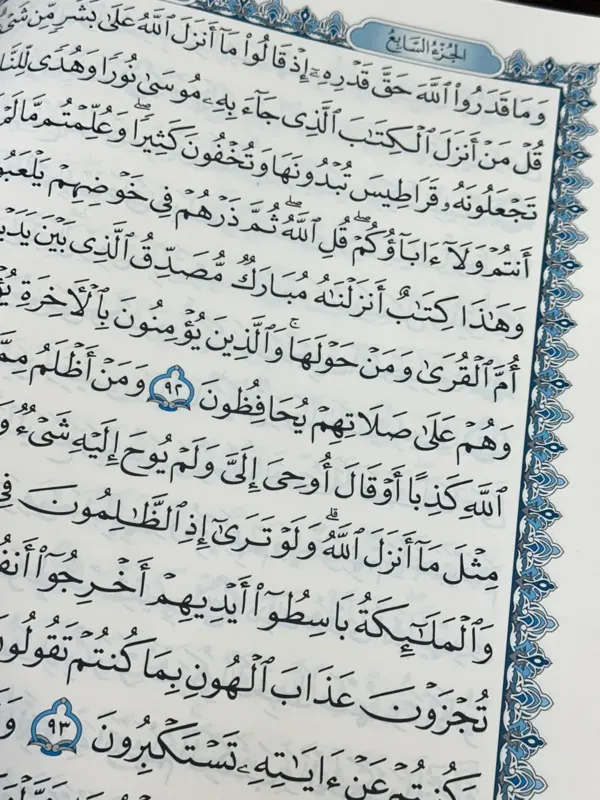 الجزء السابع
وَمَا قَدَرُوا۟ ٱللَّهَ حَقَّ قَدْرِهِۦٓ إِذْ قَالُوا۟ مَآ أَنزَلَ ٱللَّهُ عَلَىٰ بَشَرٍ مِّن
قُلْ مَنْ أَنزَلَ ٱلْكِتَٰبَ ٱلَّذِى جَآءَ بِهِۦ مُوسَىٰ نُورًا وَهُدًى
تَجْعَلُونَهُۥ قَرَاطِيسَ تُبْدُونَهَا وَتُخْفُونَ كَثِيرًا ۖ وَعُلِّمْتُم مَّا
أَنتُمْ وَلَآ ءَابَآؤُكُمْ ۖ قُلِ ٱللَّهُ ۖ ثُمَّ ذَرْهُمْ فِى خَوْضِهِمْ
وَهَٰذَا كِتَٰبٌ أَنزَلْنَٰهُ مُبَارَكٌ مُّصَدِّقُ ٱلَّذِى بَيْنَ
أُمَّ ٱلْقُرَىٰ وَمَنْ حَوْلَهَا ۚ وَٱلَّذِينَ يُؤْمِنُونَ بِٱلْءَاخِرَةِ
وَهُمْ عَلَىٰ صَلَاتِهِمْ يُحَافِظُونَ ٩٢ وَمَنْ أَظْلَمُ
ٱللَّهِ كَذِبًا أَوْ قَالَ أُوحِىَ إِلَىَّ وَلَمْ يُوحَ إِلَيْهِ شَىْءٌ
مِثْلَ مَآ أَنزَلَ ٱللَّهُ ۗ وَلَوْ تَرَىٰٓ إِذِ ٱلظَّٰلِمُونَ فِى
وَٱلْمَلَٰٓئِكَةُ بَاسِطُوٓا۟ أَيْدِيهِمْ أَخْرِجُوٓا۟
تُجْزَوْنَ عَذَابَ ٱلْهُونِ بِمَا كُنتُمْ تَقُولُونَ
وَكُنتُمْ عَنْ ءَايَٰتِهِۦ تَسْتَكْبِرُونَ ٩٣